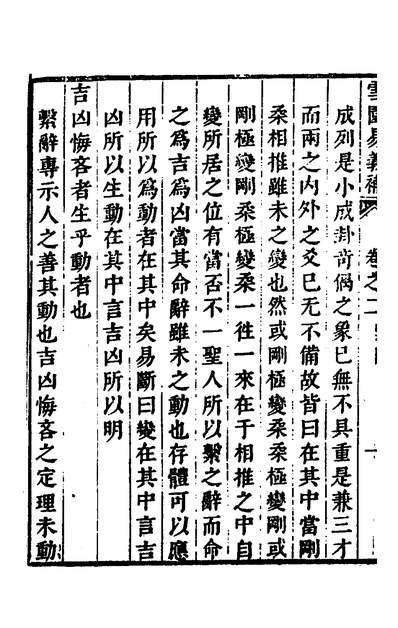 雪園易義補 卷之二
成列是小成卦奇偶之象已無不具重是兼三才
而兩之內外之爻已无不備故皆曰在其中當剛
柔相推雖未之變也然或剛極變柔柔極變剛或
剛極變剛柔極變柔一徃一來在于相推之中自
變所居之位有當否不一聖人所以繫之辭而命
之為吉為凶當其命辭雖未之動也存體可以應
用所以為動者在其中矣易斷曰變在其中言吉
凶所以生動在其中言吉凶所以明
吉凶悔吝者生乎動者也
繫辭專示人之善其動也吉凶悔吝之定理未動